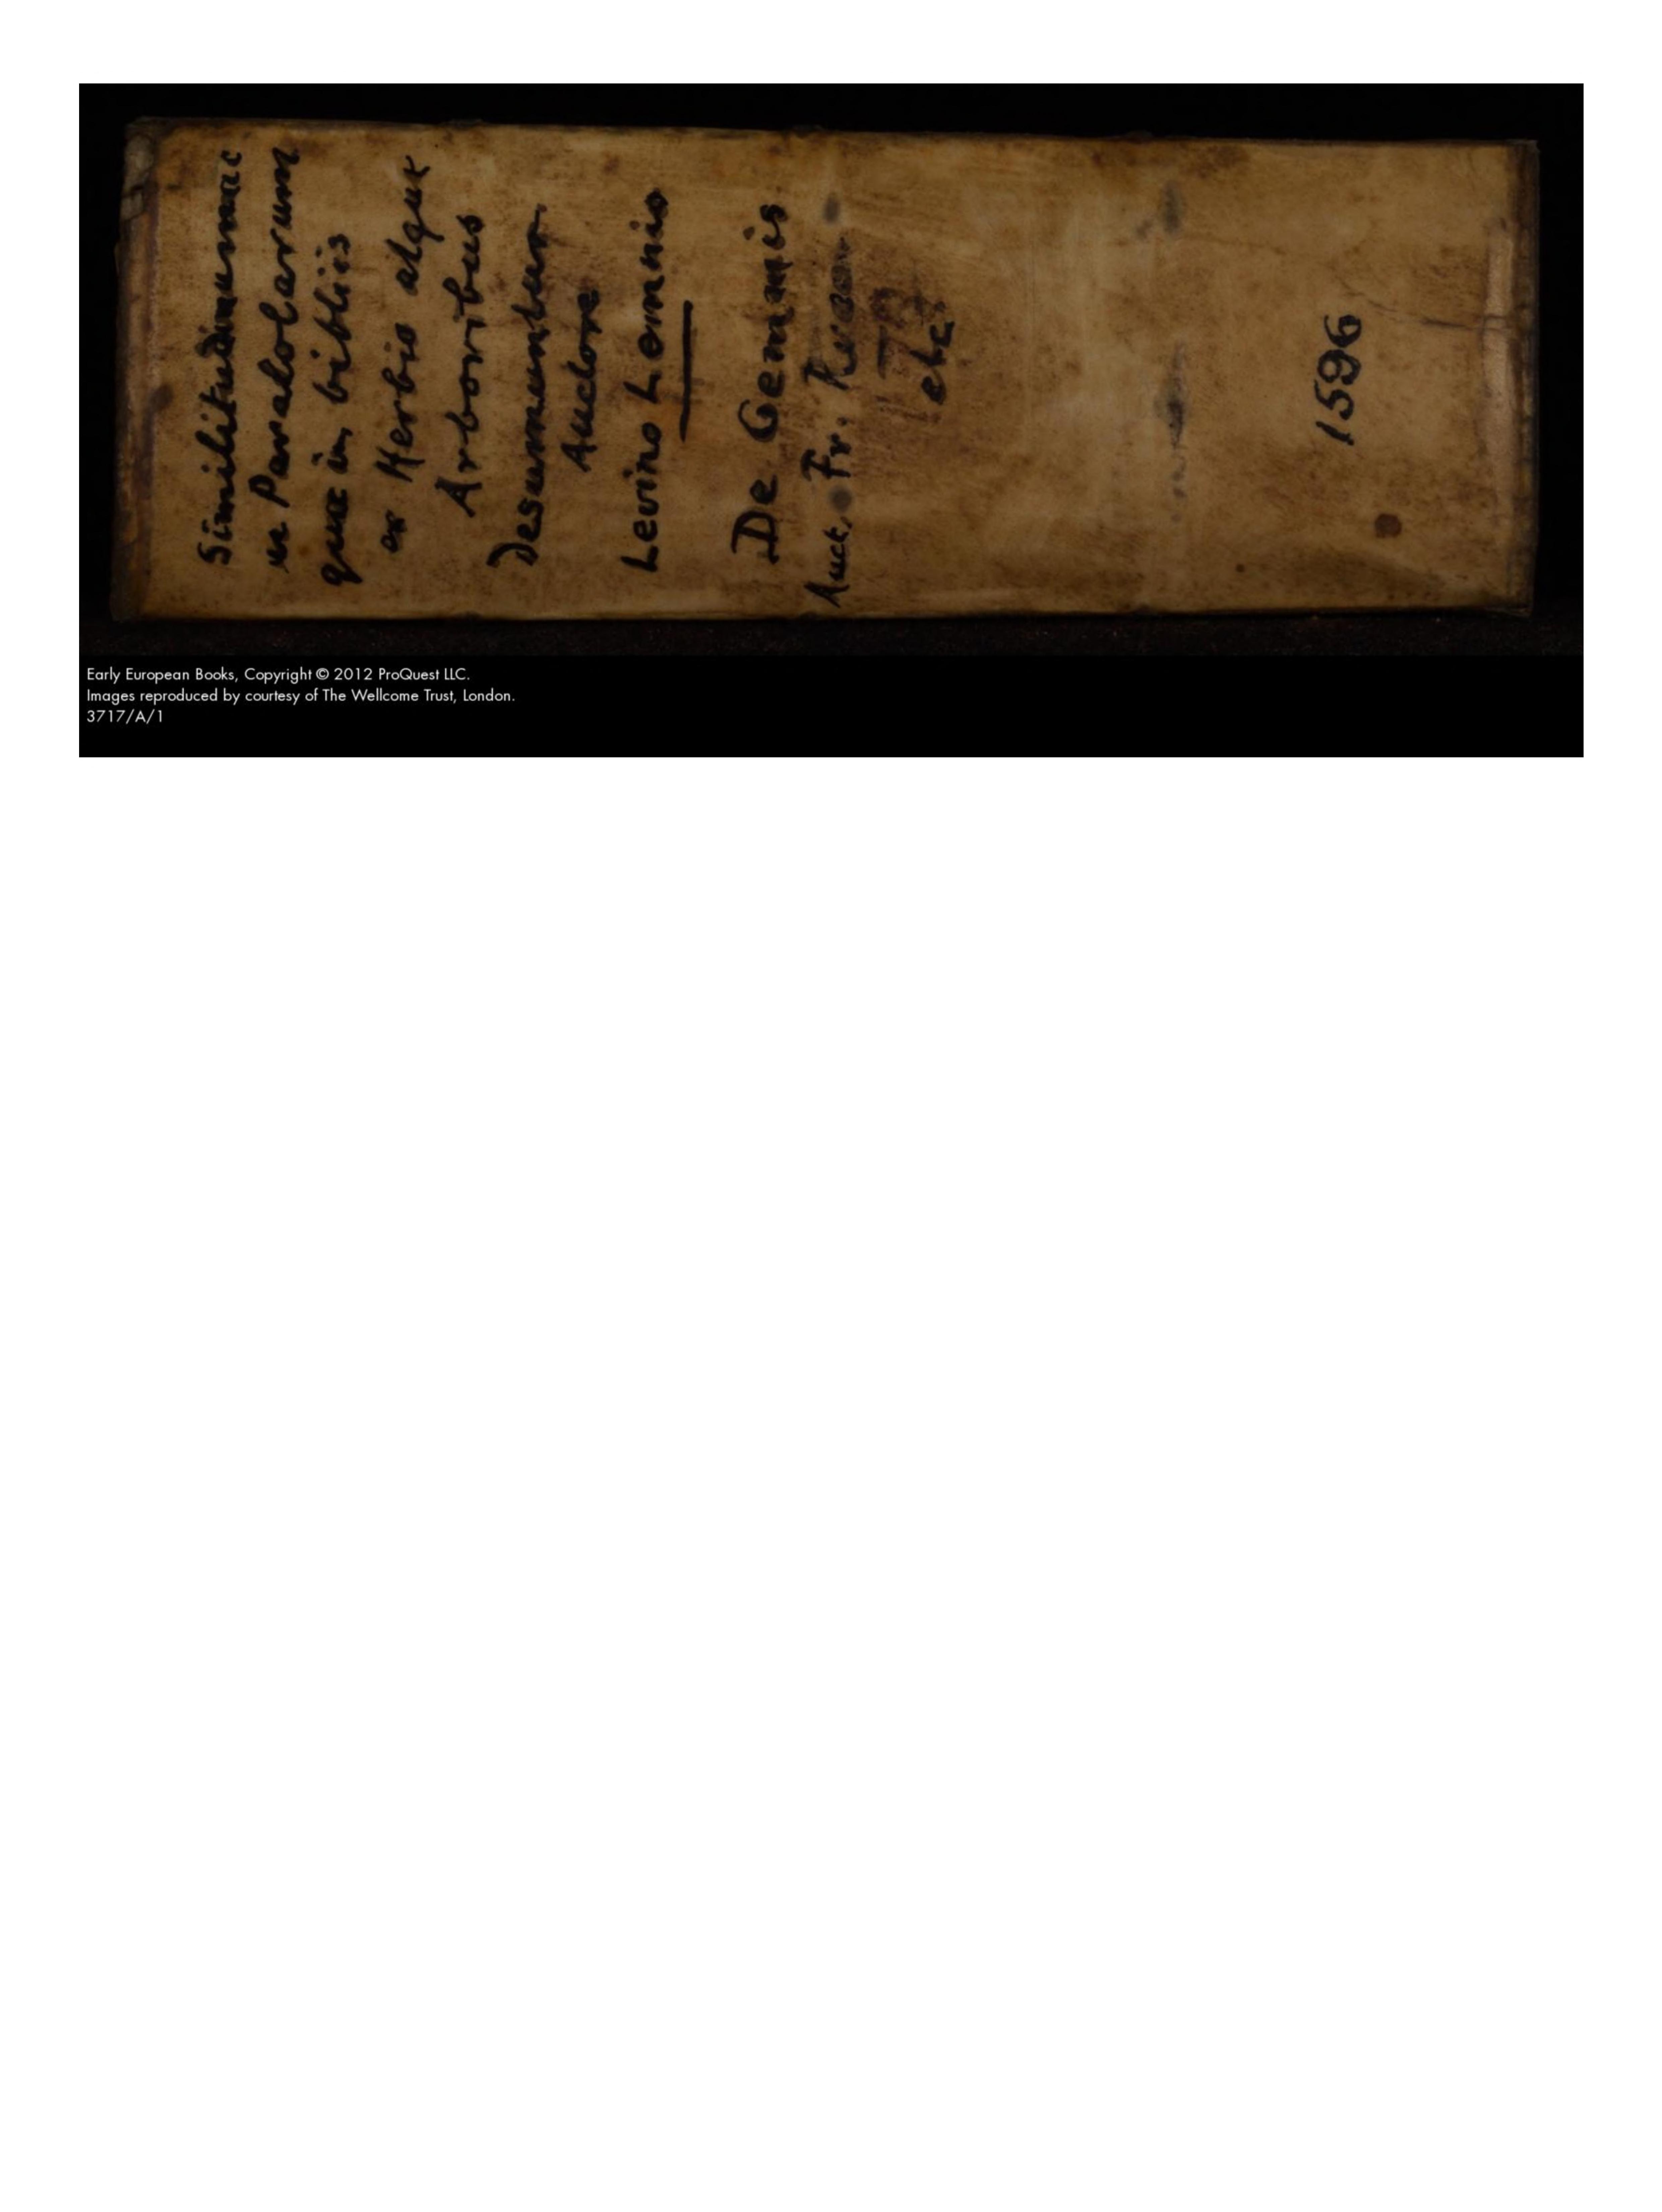 Similitudinum ac
Parabolarum
quae in bibliis
ex Herbis atque
Arboribus
Desumuntur
Auctore
Levino Lemnio
De Gemmis
Auct. Fr.
etc.
1596
Early European Books, Copyright © 2012 ProQuest LLC.
Images reproduced by courtesy of The Wellcome Trust, London.
3717/A/1